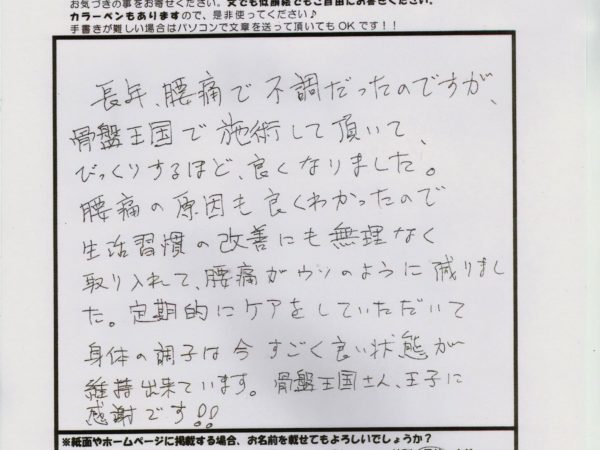 お気づきの事をお寄せください。文でも似顔絵でもご自由にお書きください。
カラーペンもありますので、是非使ってください♪
手書きが難しい場合はパソコンで文章を送って頂いてもOKです!!
長年、腰痛で不調だったのですが、
骨盤王国で施術して頂いて、
びっくりするほど、良くなりました。
腰痛の原因も良くわかったので
生活習慣の改善にも無理なく
取り入れて、腰痛がウソのように減りまし
た。定期的にケアをしていただいて
身体の調子は今すごく良い状態が
維持出来ています。骨盤王国さん、王子に
感謝です!!
※紙面やホームページに掲載する場合、お名前を載せてもよろしいでしょうか?